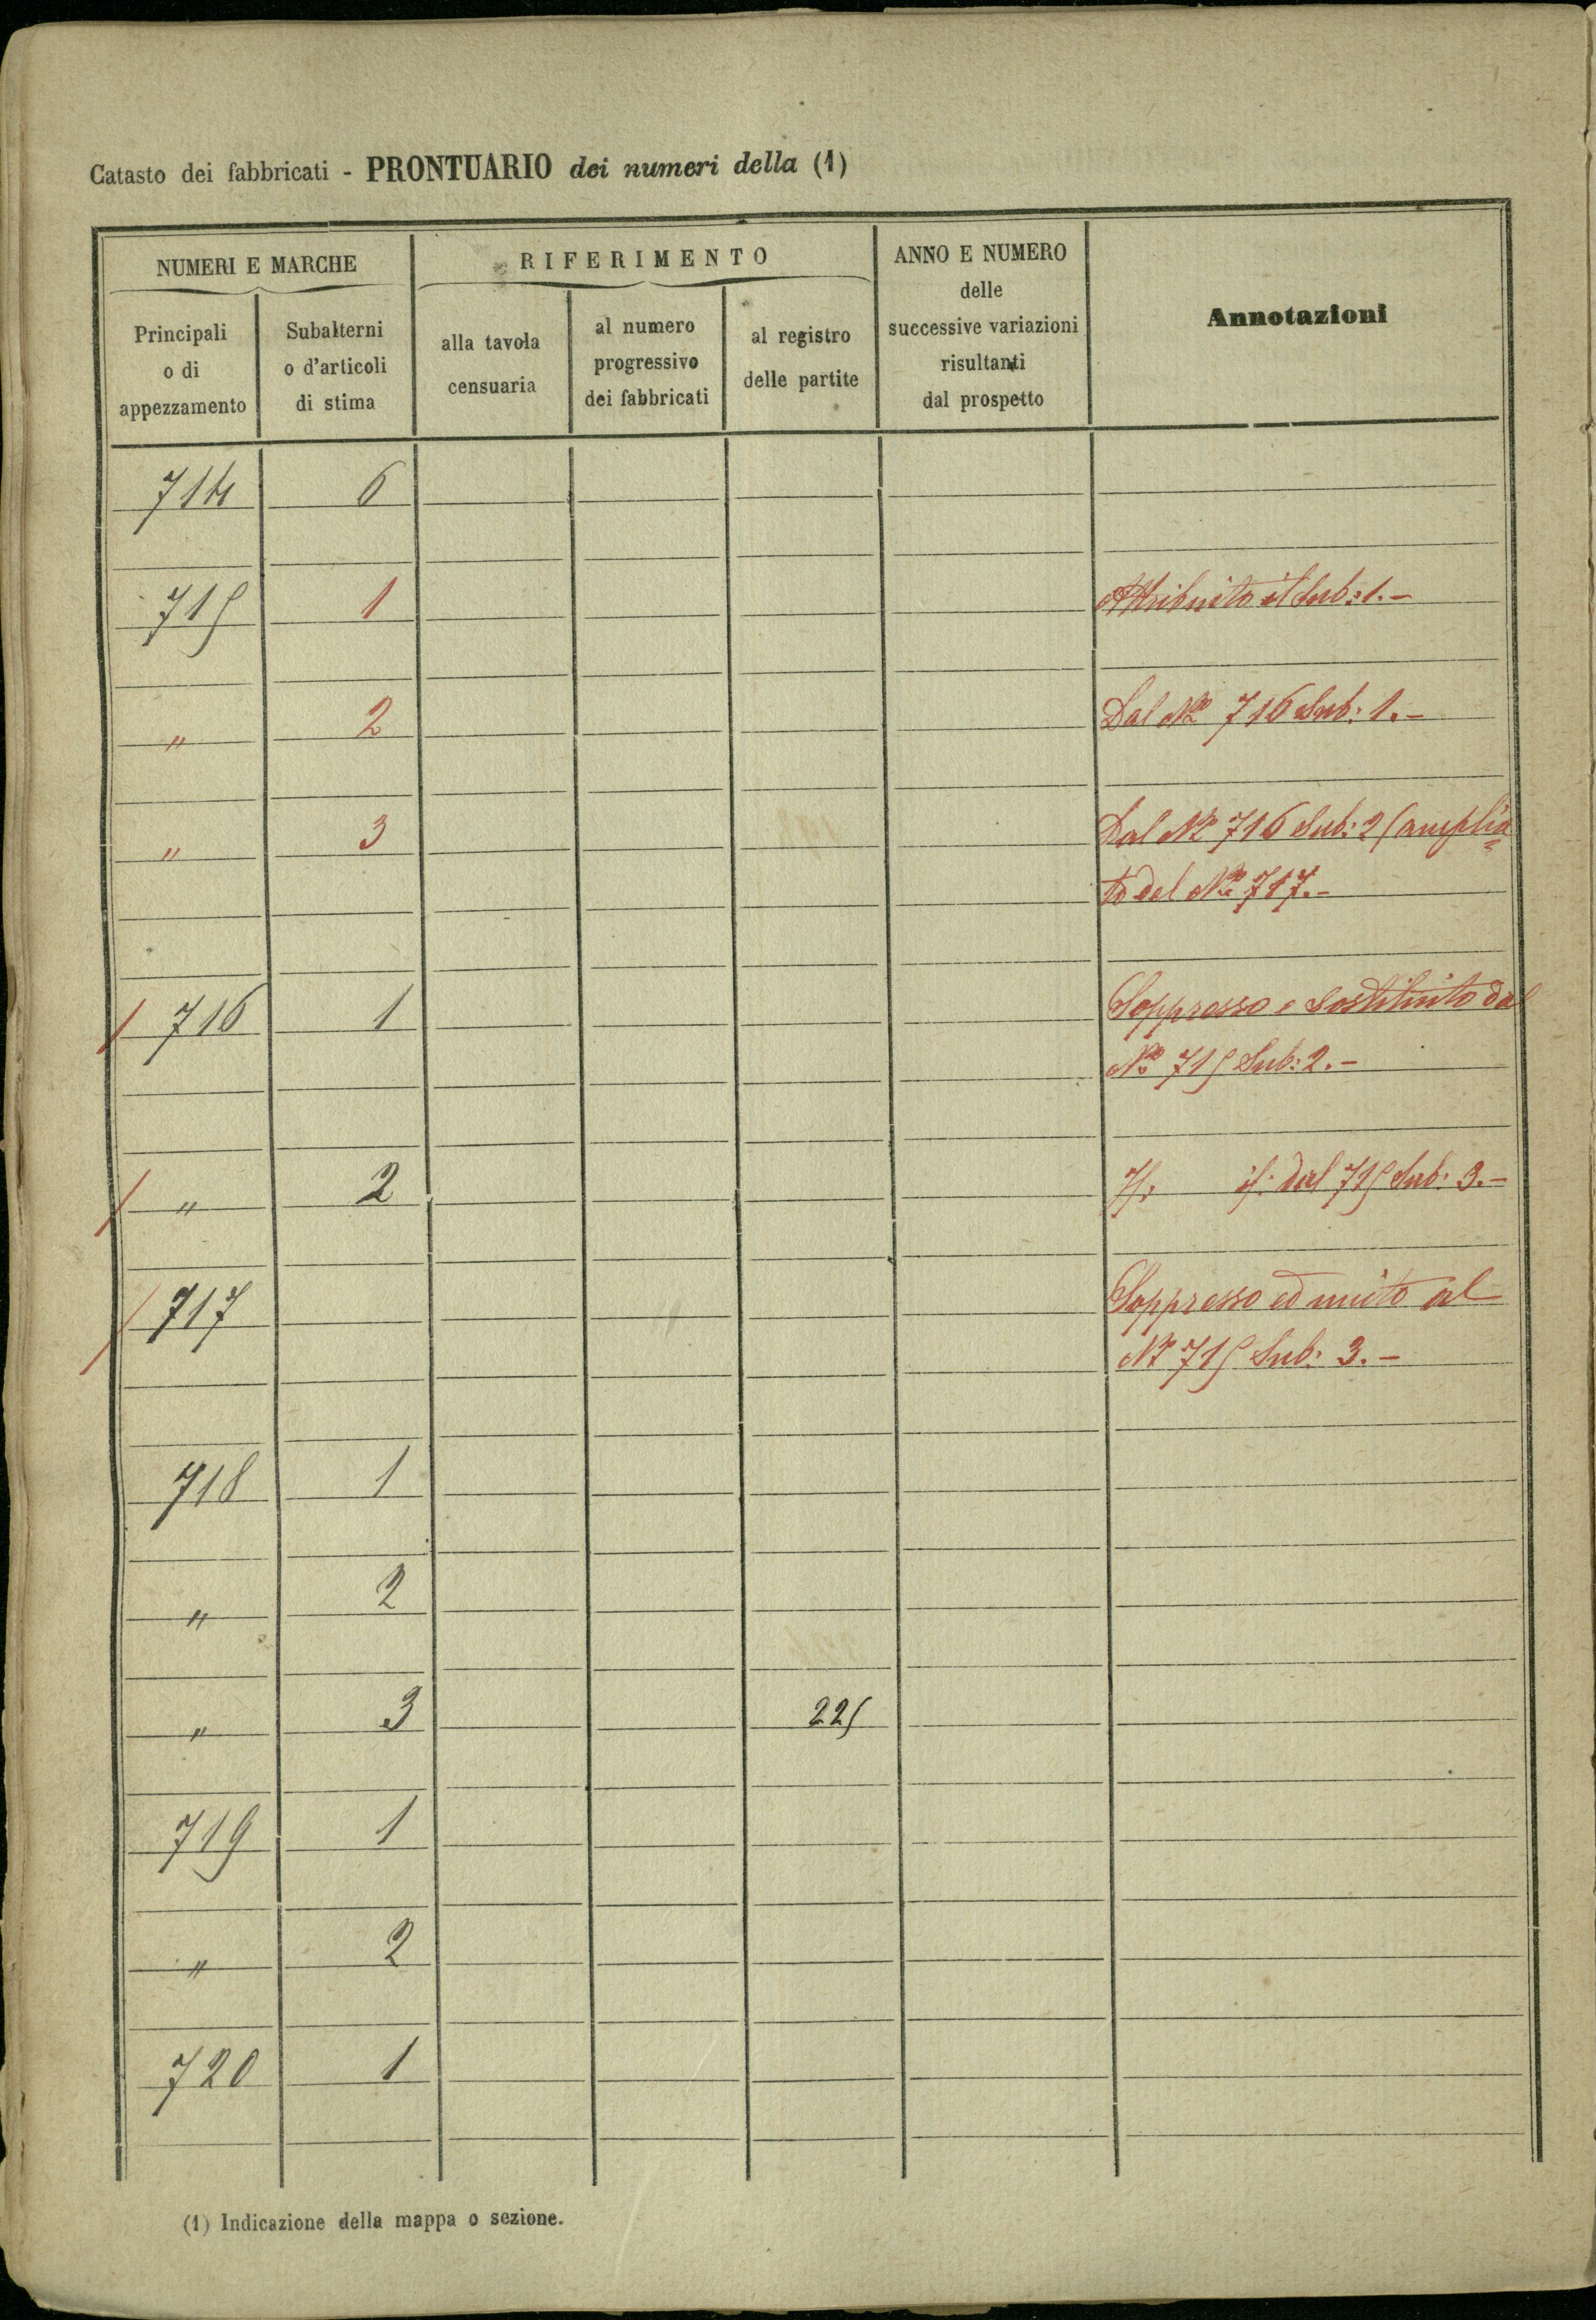 Catasto dei fabbricati - PRONTUARIO dei numeri della (1)
NUMERI E MARCHE
RIFERIMENTO
ANNO E NUMERO
delle
successive variazioni
risultanti
dal prospetto
Annotazioni
Principali
o di
appezzamento
Subalterni
o d'articoli
di stima
alla tavola
censuaria
al numero
progressivo
dei fabbricati
al registro
delle partite
714 6
715 1 Attribuito il Sub: 1.-
" 2 Dal No 716 Sub: 1.-
" 3 Dal No 716 Sub: 2 (amplia=
to del No 717.-
/ 716 1 Soppresso e Sostituito dal
No 715 Sub: 2.-
/ " 2 If: if: dal 715 Sub: 3.-
/ 717 Soppresso ed unito al
No 715 Sub: 3.-
718 1
" 2
" 3 225
719 1
" 2
720 1
(1) Indicazione della mappa o sezione.